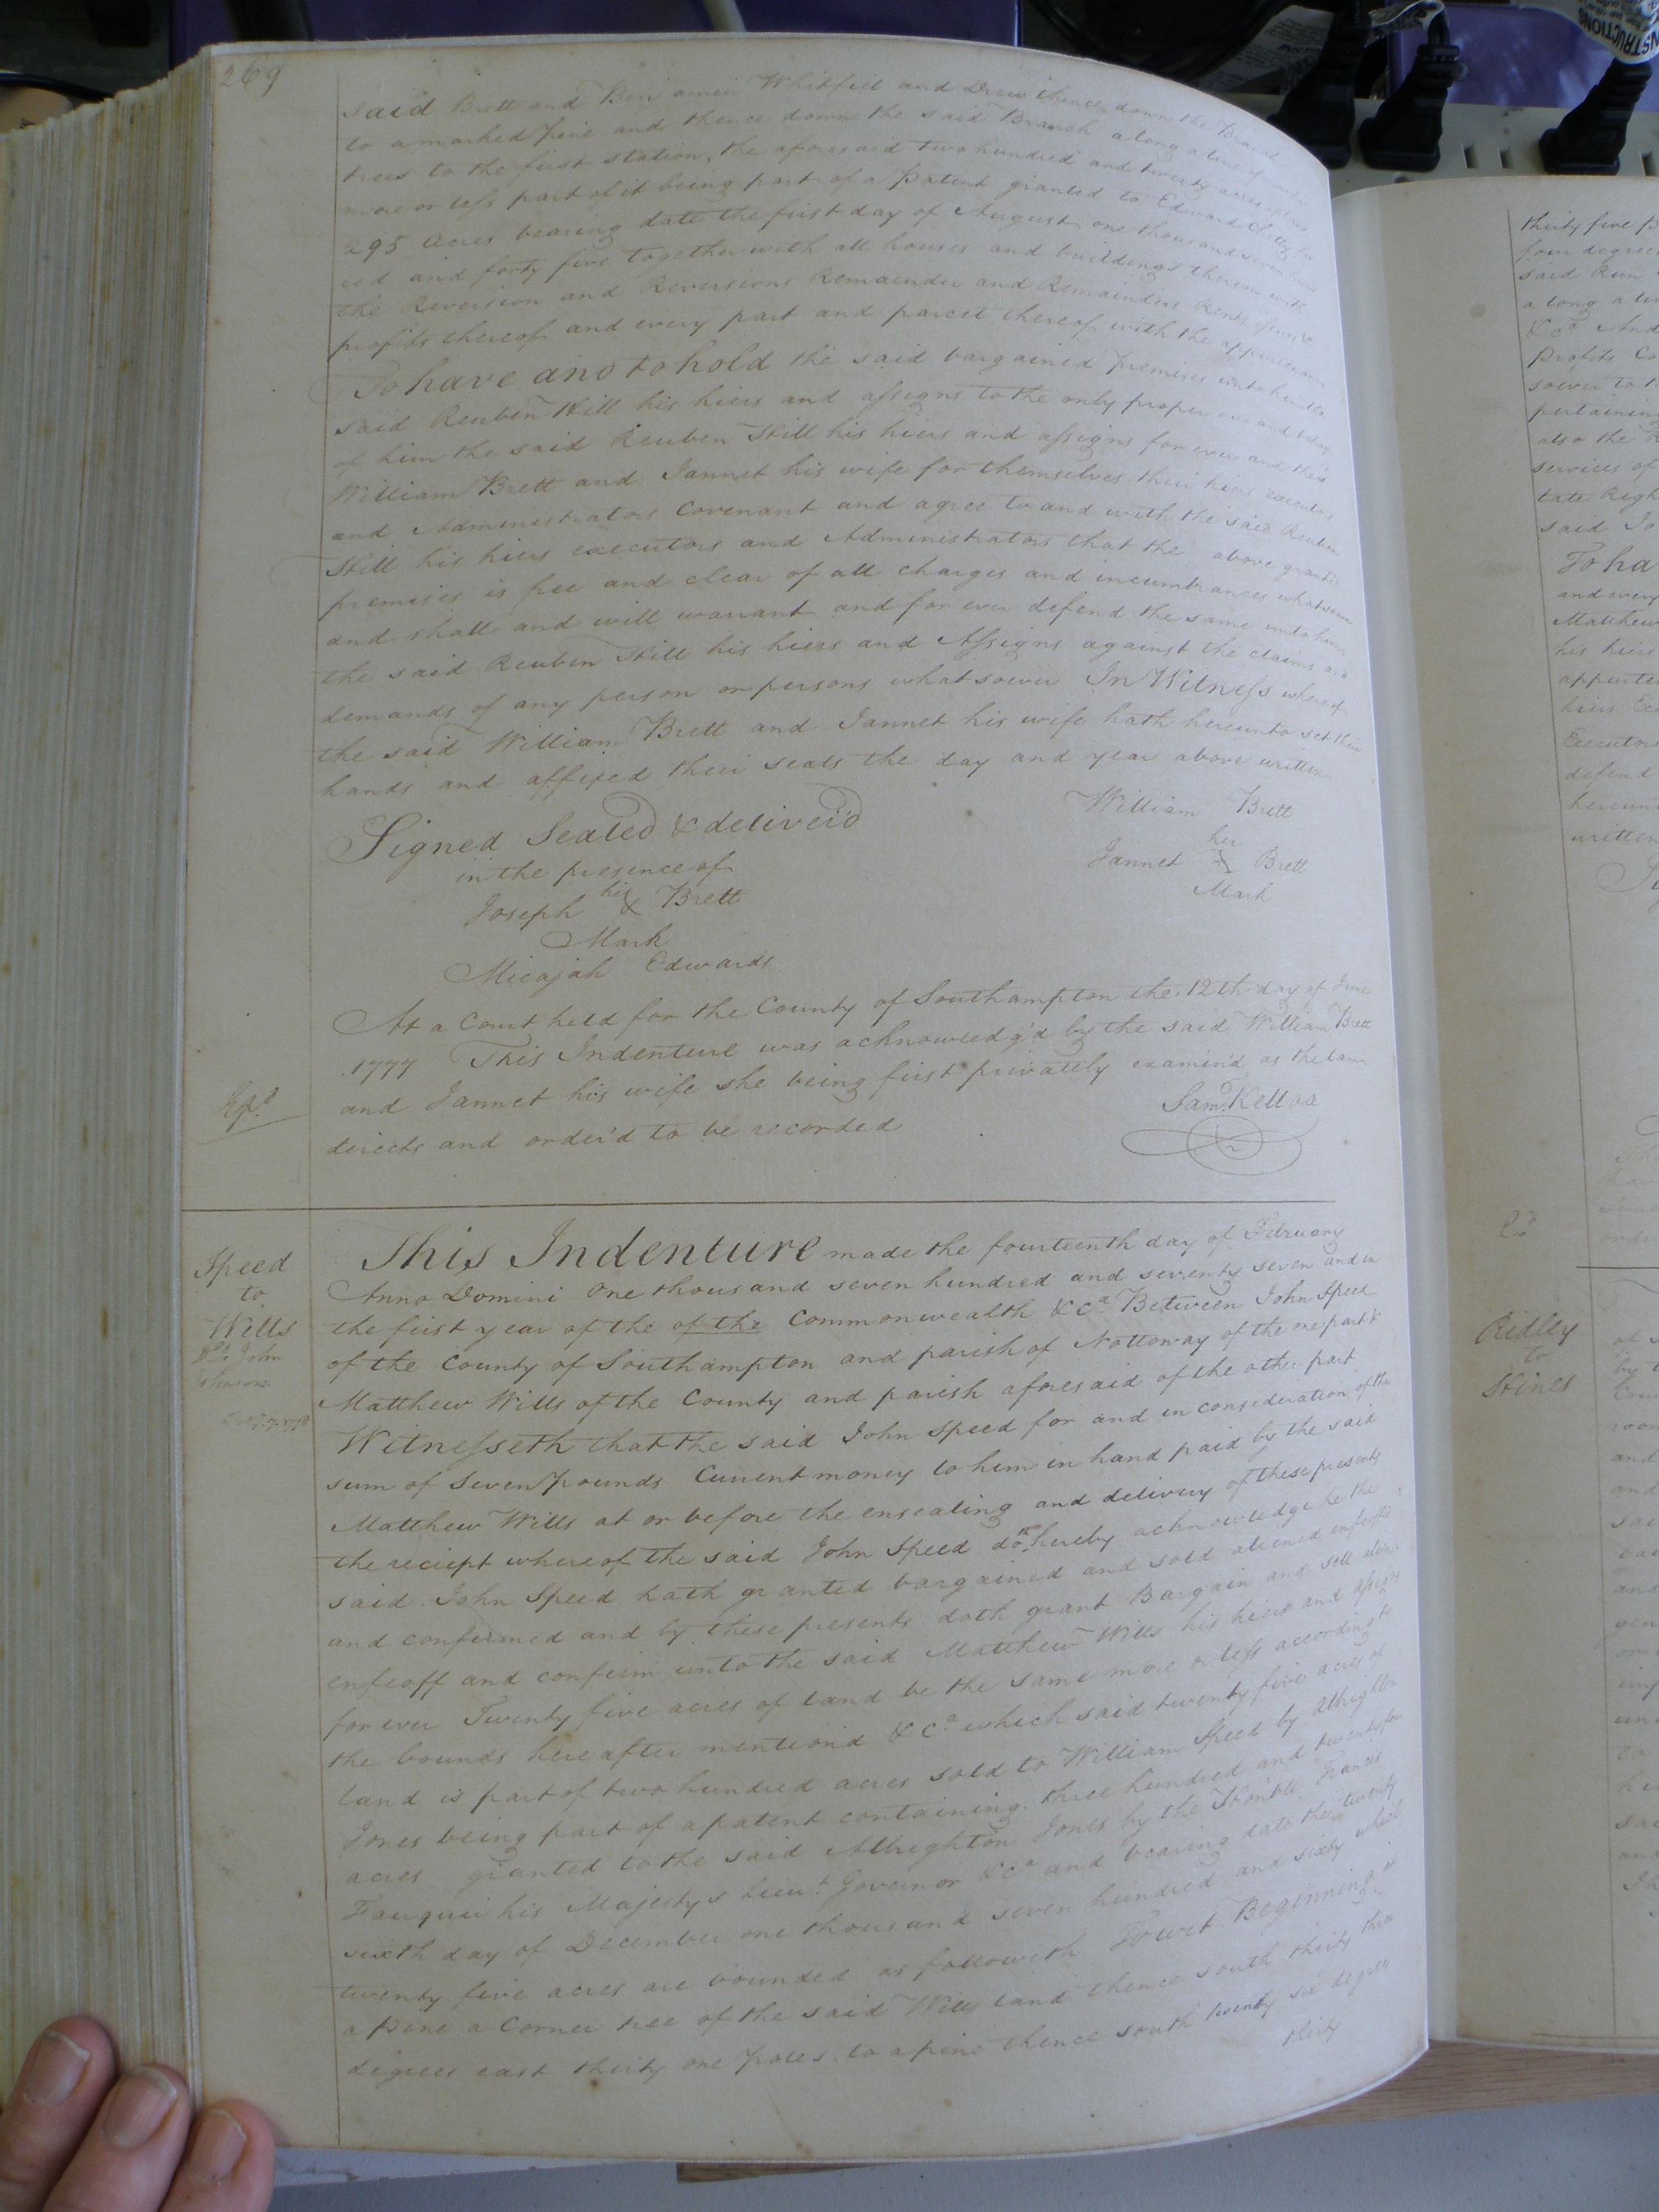 269
said Brett and Benjamin Whitfield and Drew thence down the Branch
to a marked pine and thence down the said Branch along a line of
trees to the first station, the aforesaid two hundred and twenty acres
more or less part of it being part of a Patent granted to Edward Chitty for
295 acres bearing date the first day of August one thousand seven hund
red and forty five together with all houses and buildings thereon with
the Reversion and Reversions Remainder and Remainders Rents issues &
profits thereof and every part and parcel thereof with the appurtenances
To have and to hold the said bargained premises unto him the
said Reuben Hill his hiers and assigns to the only proper use and behoof
of him the said Reuben Hill his hiers and assigns for ever and the said
William Brett and Jannet his wife for themselves their hiers executors
and Administrators Covenant and agree to and with the said Reuben
Hill his hiers executors and Administrators that the above granted
premises is free and clear of all charges and incumbrances whatsoever
and shall and will warrant and for ever defend the same unto him
the said Reuben Hill his hiers and Assigns against the claims and
demands of any person or persons whatsoever In Witness whereof
the said William Brett and Jannet his wife hath hereunto set their
hands and affixed their seals the day and year above written
Signed Sealed & deliver'd
in the presence of
Joseph his X Brett
Mark
Micajah Edwards
William Brett
her
Jannet X Brett
Mark
At a Court held for the County of Southampton the 12th day of June
1777 This Indenture was acknowledg'd by the said William Brett
and Jannet his wife she being first privately examin'd as the law
directs and order'd to be recorded
Saml. Kelloa
Speed
to
Wills
John
Johnson
This Indenture made the fourteenth day of February
Anno Domini One thousand seven hundred and seventy seven and in
the first year of the of the Commonwealth &ca. Between John Speed
of the County of Southampton and parish of Nottoway of the one part &
Matthew Wills of the County and parish aforesaid of the other part
Witnesseth that the said John Speed for and in consideration of the
sum of Seven pounds Current money to him in hand paid by the said
Matthew Wills at or before the ensealing and delivery of these presents
the reciept whereof the said John Speed doth hereby acknowledge he the
said John Speed hath granted bargained and sold aliened infeoffed
and confirmed and by these presents doth grant Bargain and sell alien
enfeoff and confirm unto the said Matthew Wills his hiers and assigns
for ever Twenty five acres of land be the same more or less according to
the bounds hereafter mention'd &ca. which said twenty five acres of
land is part of two hundred acres sold to William Speed by Albrighton
Jones being part of a patent containing three hundred and twenty four
acres granted to the said Albrighton Jones by the Honble. Frances
Fauquier his Majestys Lieut. Governor &ca and bearing date the twenty
sixth day of December one thousand seven hundred and sixty which
twenty five acres are bounded as followeth Towit Beginning at
a pine a Corner tree of the said Wills land thence south thirty three
degrees east thirty one poles to a pine thence south twenty six degrees
thirty
thirty five p
four degree
said Run
along a lin
&ca And
profits Co
soever to t
pertaining
also the R
services of
tate Righ
said Jo
To ha
and every
Matthew
his hiers
appurte
hiers Ex
Executors
defend
hereun
written
Ridley
to
Hines